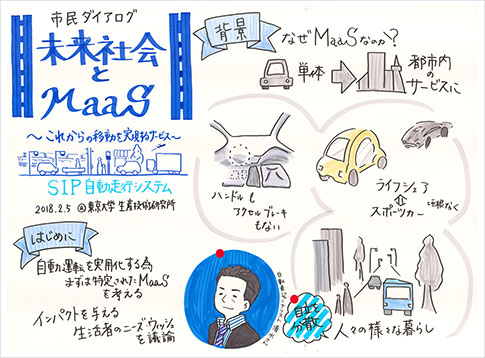 市民ダイアログ
未来社会
と
MaaS
～これからの移動を実現するサービス～
SIP自動走行システム
2018.2.5 @東京大学 生産技術研究所
はじめに
自動運転を実用化する為
まずは特定されたMaaS
を考える
インパクトを与える
生活者のニーズ・ウォッシュ
を議論
背景
なぜMaaSなのか?
単体
都市内
の
サービスに
ハンドルも
アクセルブレーキ
もない
ライフシェア
スポーツカー
垣根なく
人々の様々な暮らし